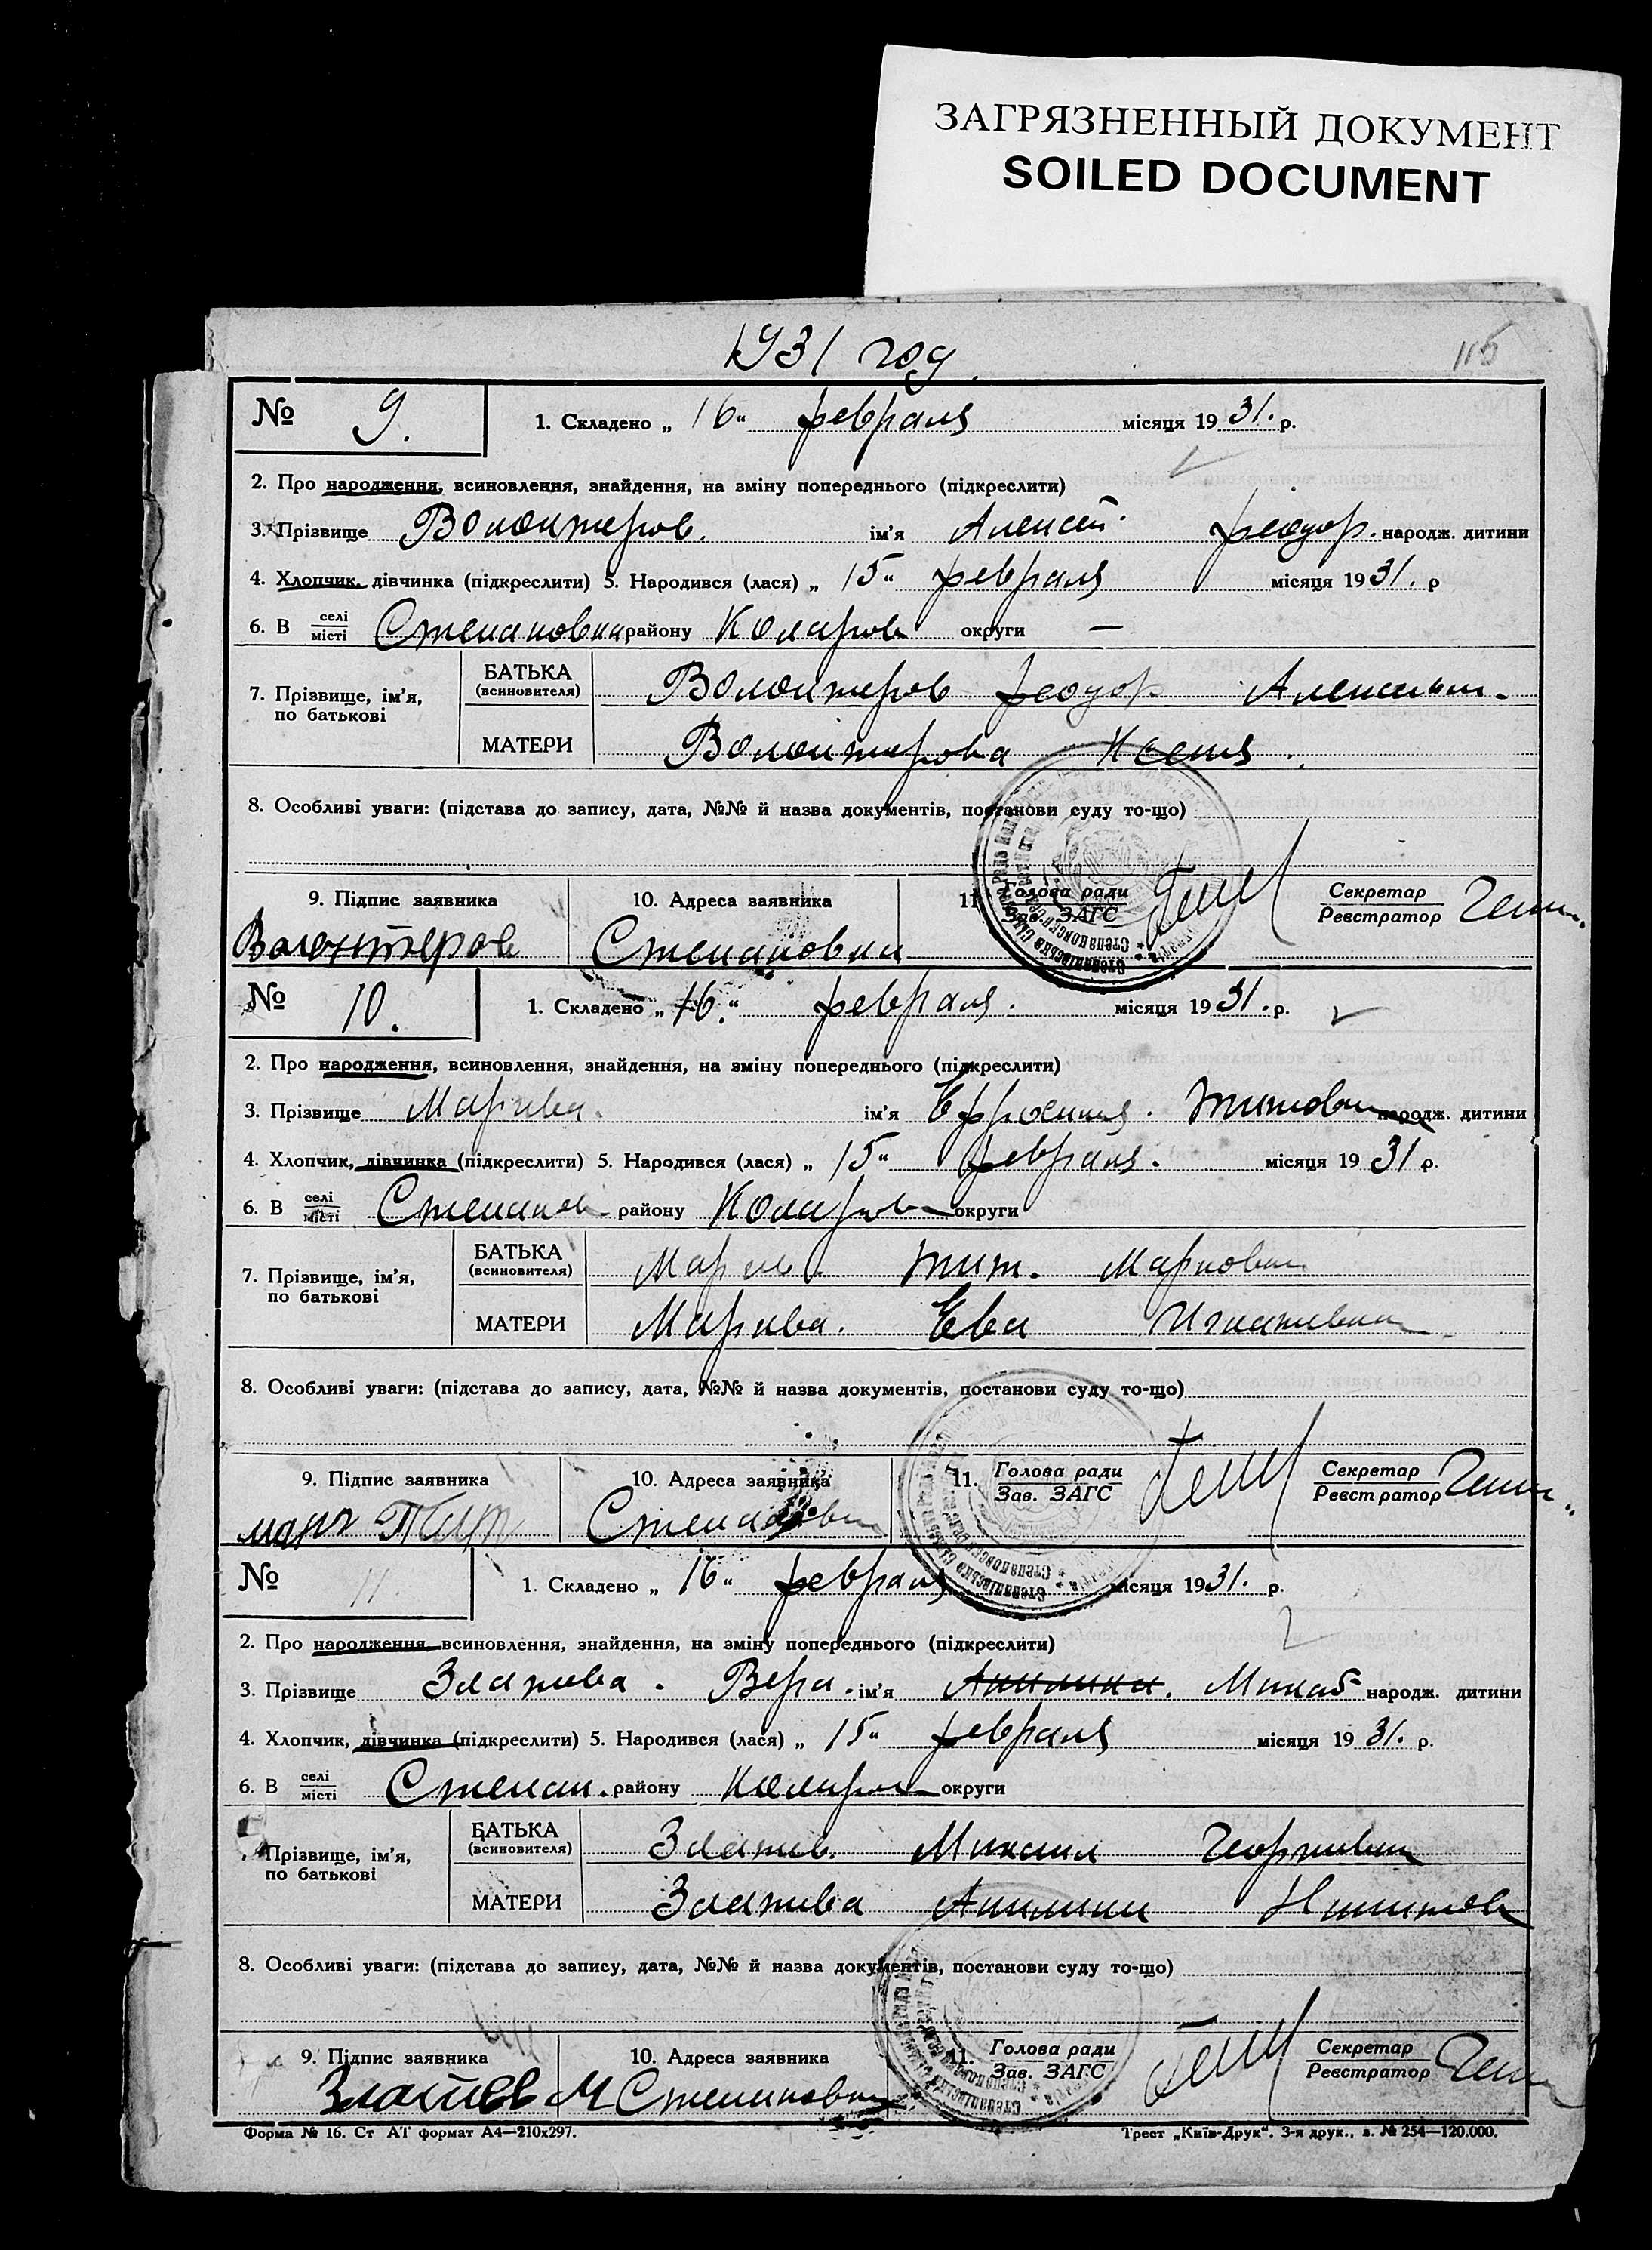 ЗАГРЯЗНЕННЫЙ ДОКУМЕНТ
SOILED DOCUMENT
1931 год
115
№ 9. 1. Складено „16“ февраля місяця 1931. р.
2. Про народження, всиновлення, знайдення, на зміну попереднього (підкреслити)
3. Прізвище Волонтеров. ім'я Алексей Феодор. народж. дитини
4. Хлопчик, дівчинка (підкреслити) 5. Народився (лася) „15“ февраля місяця 1931. р
6. В селі/місті Степановка, району Коларов округи —
7. Прізвище, ім'я, по батькові
БАТЬКА (всиновителя) Волонтеров Феодор Алексеев.
МАТЕРИ Волонтерова Ксения
8. Особливі уваги: (підстава до запису, дата, №№ й назва документів, постанови суду то-що)
9. Підпис заявника 10. Адреса заявника 11. Голова ради/Зав. ЗАГС Секретар/Реєстратор
Волонтеров Степановка
№ 10. 1. Складено „16.“ февраля. місяця 1931. р.
2. Про народження, всиновлення, знайдення, на зміну попереднього (підкреслити)
3. Прізвище ім'я Ефросиния. Титовна народж. дитини
4. Хлопчик, дівчинка (підкреслити) 5. Народився (лася) „15“ февраля. місяця 1931 р.
6. В селі/місті Степанов району Коларов округи
7. Прізвище, ім'я, по батькові
БАТЬКА (всиновителя) Тит. Маркович
МАТЕРИ Ева Игнатевна
8. Особливі уваги: (підстава до запису, дата, №№ й назва документів, постанови суду то-що)
9. Підпис заявника 10. Адреса заявника 11. Голова ради/Зав. ЗАГС Секретар/Реєстратор
Степановка
№ 11 1. Складено „16“ февраля місяця 1931. р.
2. Про народження, всиновлення, знайдення, на зміну попереднього (підкреслити)
3. Прізвище Златева. Вера. ім'я народж. дитини
4. Хлопчик, дівчинка (підкреслити) 5. Народився (лася) „15“ февраля місяця 1931. р.
6. В селі/місті Степан. району Коларов округи
Прізвище, ім'я, по батькові
БАТЬКА (всиновителя) Златев. Михаил Георгиевич
МАТЕРИ Златева
8. Особливі уваги: (підстава до запису, дата, №№ й назва документів, постанови суду то-що)
9. Підпис заявника 10. Адреса заявника 11. Голова ради/Зав. ЗАГС Секретар/Реєстратор
Златев М Степановка
Форма № 16. Ст АТ формат А4—210х297. Трест „Київ-Друк“. 3-я друк., з. № 254—120.000.